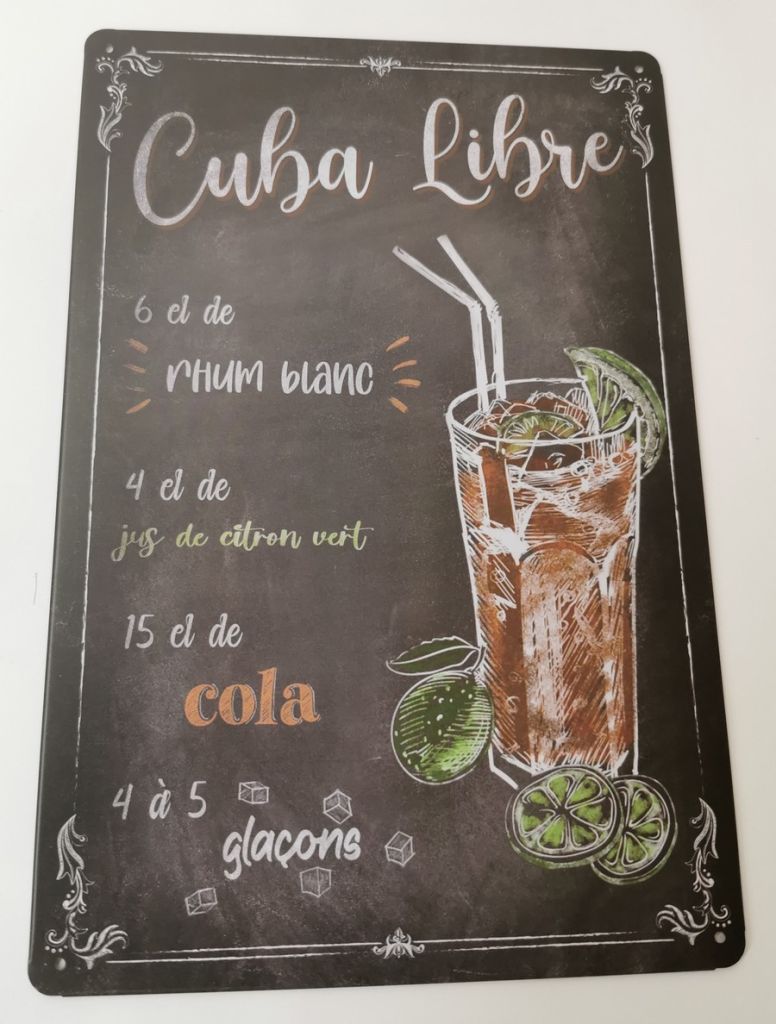 Cuba Libre
6 cl de
rHUM blanc
4 cl de
jus de citron vert
15 cl de
cola
4 à 5
glaçons